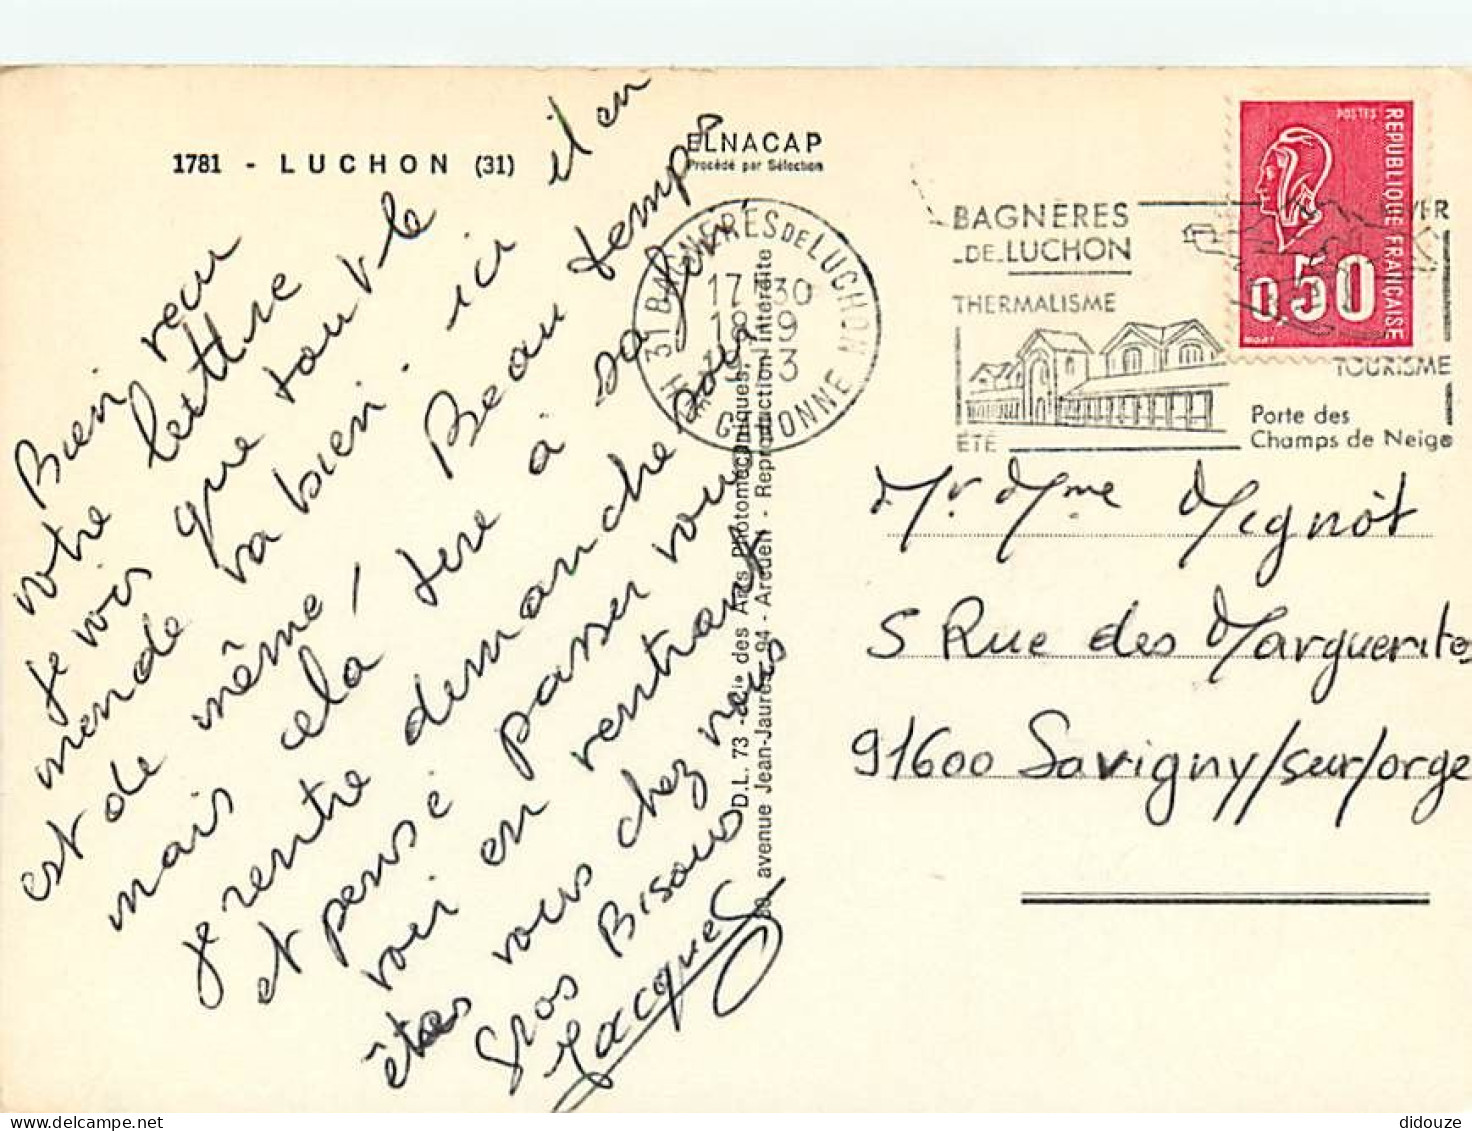 1781 - LUCHON (31)
ELNACAP
Procédé par Sélection
Bien reçu
votre lettre
je vois que tout le
monde va bien. ici il en
est de même, Beau temps
mais cela tire à sa fin
je rentre dimanche soir
et pense passer vous
voir en rentrant
êtes vous chez vous
gros Bisous
Jacques
D.L. 73 - des Arts Photomécaniques,
avenue Jean-Jaurès, 94 - Arcueil - Reproduction interdite
31 BAGNÈRES DE LUCHON
17 30
18 9
Hte GARONNE
BAGNÈRES
DE LUCHON
THERMALISME
ÉTÉ
HIVER
TOURISME
Porte des
Champs de Neige
POSTES
RÉPUBLIQUE FRANÇAISE
0,50
Mr Mme Mignot
5 Rue des Marguerites
91600 Savigny/sur/orge
didouze